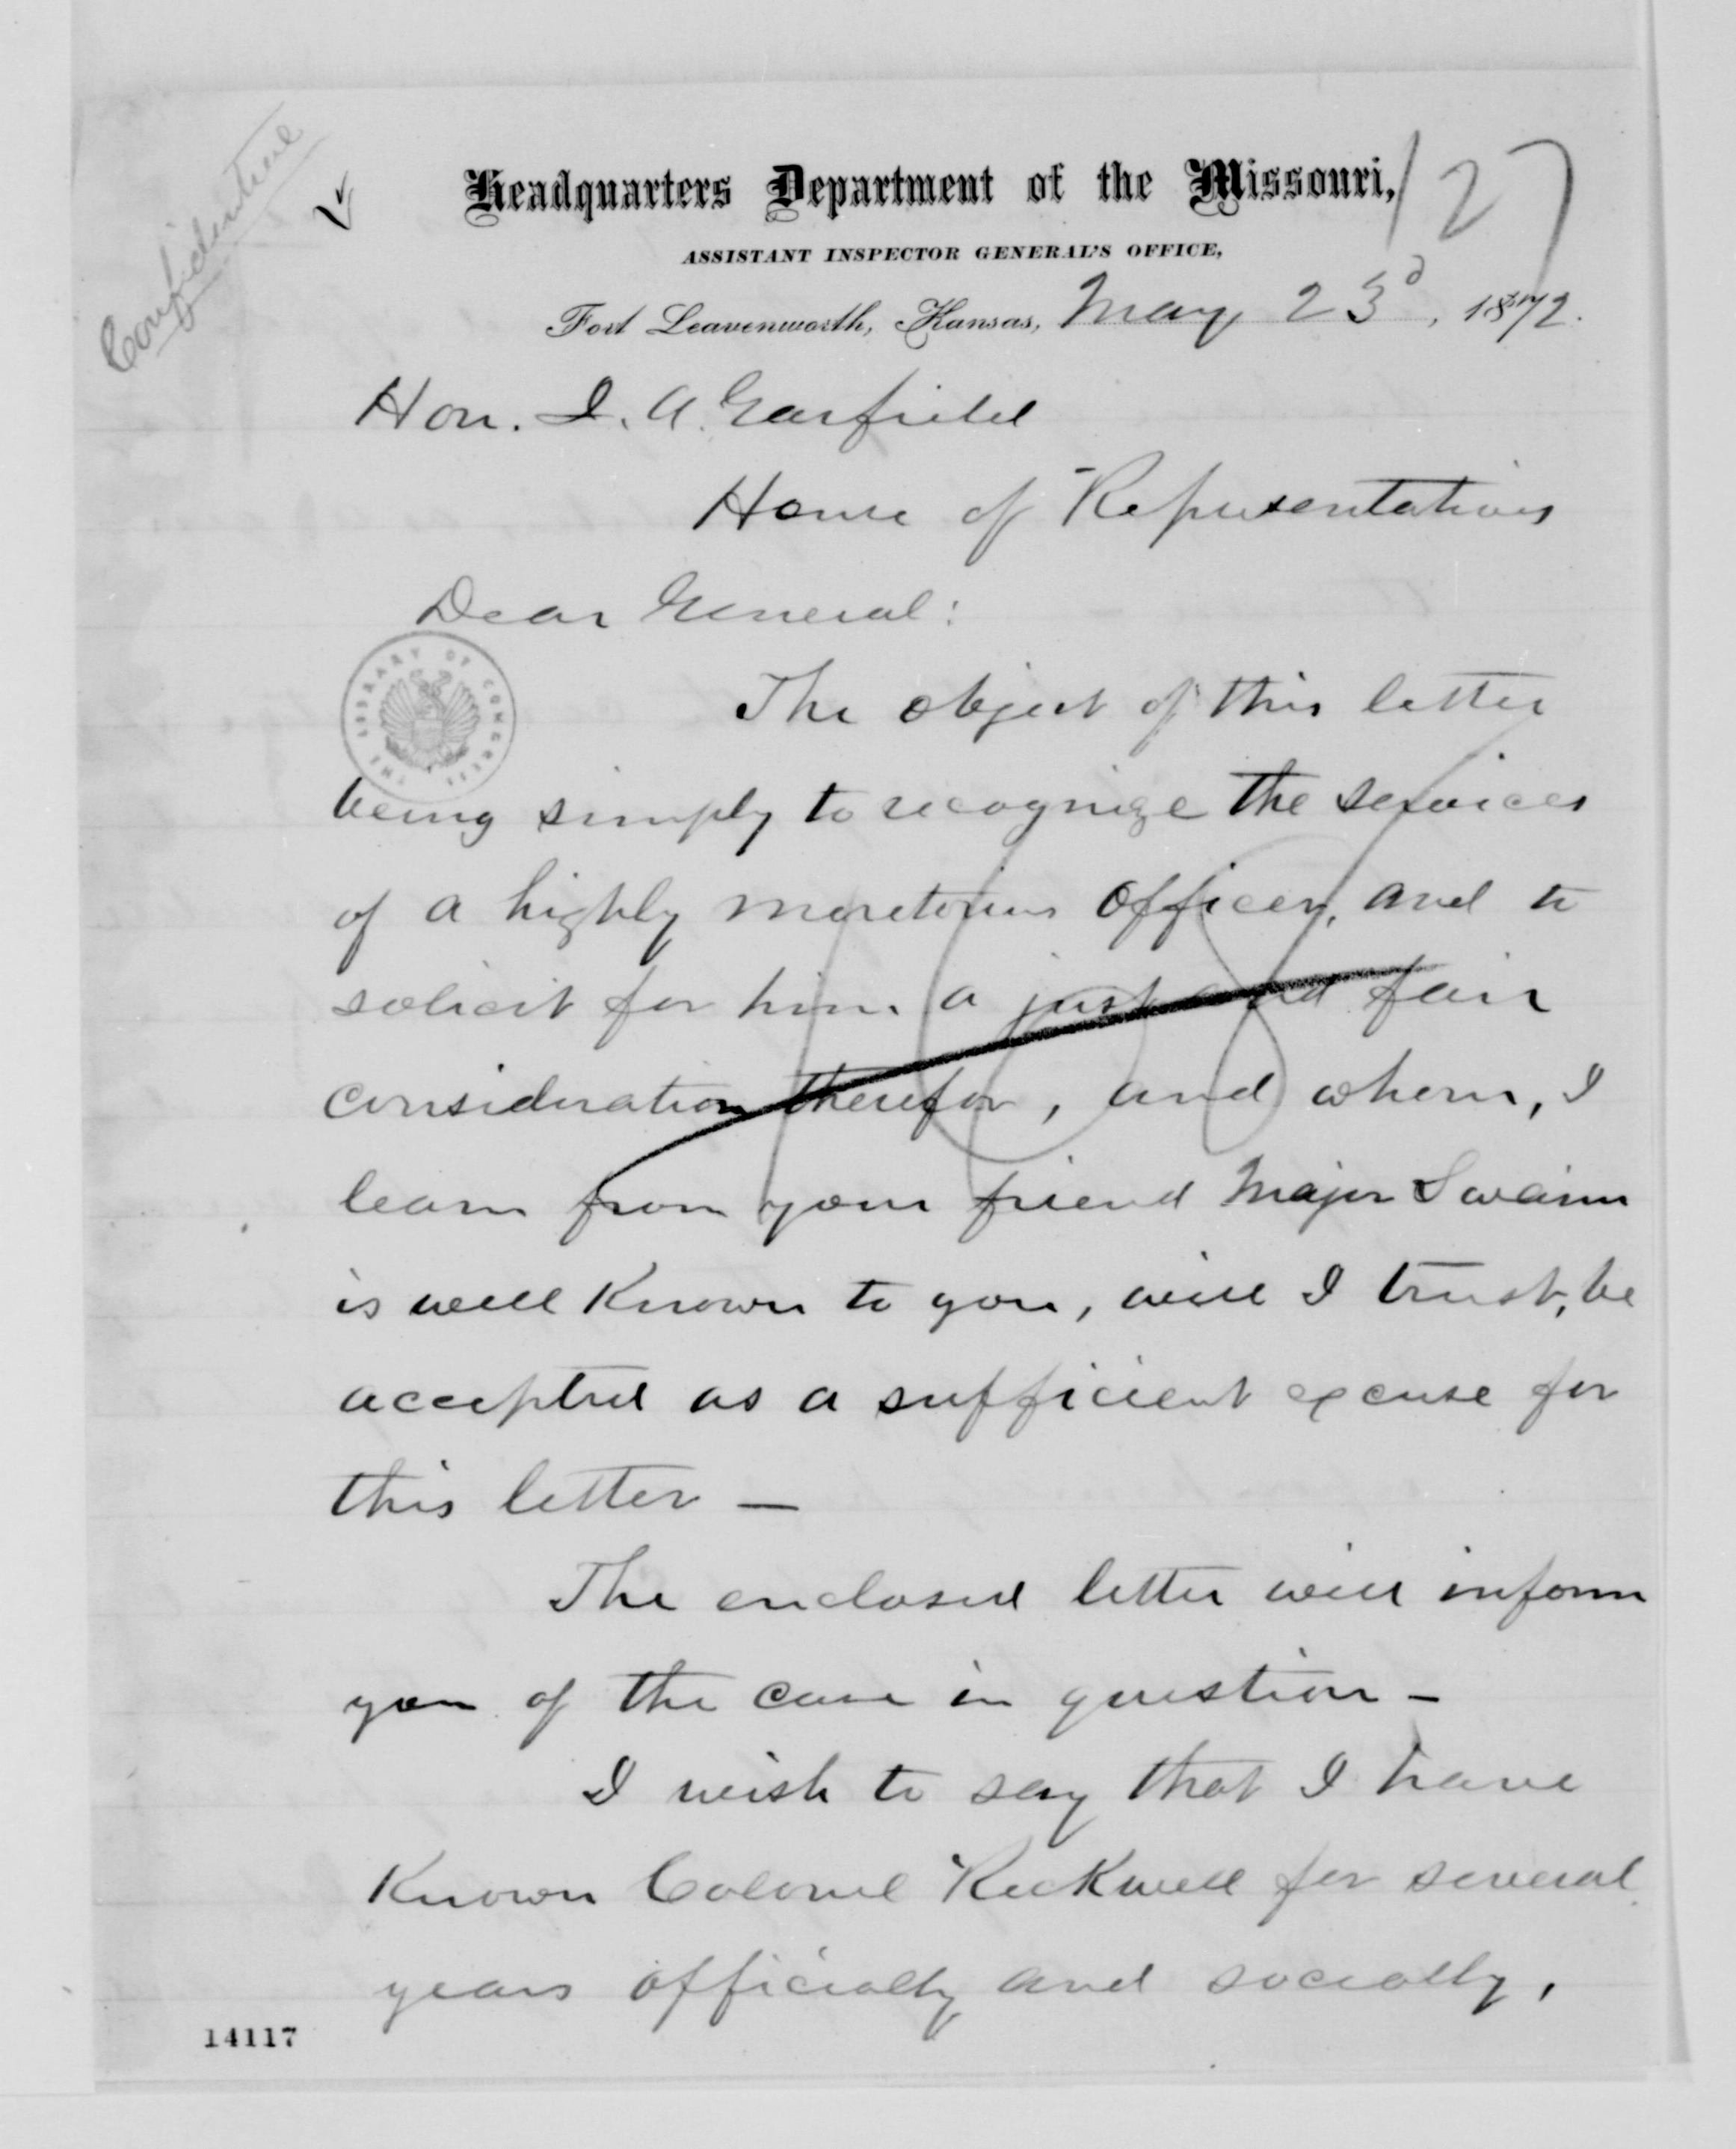 Confidential
Headquarters Department of the Missouri,
127
ASSISTANT INSPECTOR GENERAL'S OFFICE,
Fort Leavenworth, Kansas, May 23d, 1872.
Hon. J. A. Garfield
House of Representatives
Dear General:
THE LIBRARY OF CONGRESS
The object of this letter
being simply to recognize the services
of a highly meretorius officer, and to
solicit for him a just and fair
consideration therefor, and whom, I
learn from your friend Major Swaim
is well Known to you, will I trust, be
accepted as a sufficient excuse for
this letter —
The enclosed letter will inform
you of the case in question —
I wish to say that I have
Known Colonel Rockwell for several
years officially and socially,
14117